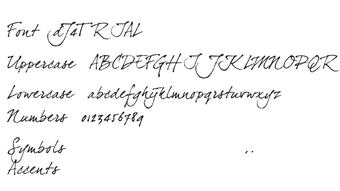 Font dJ4T R JAL
Uppercase ABCDEFGH I JKLMNOPQR
Lowercase abcdefghijklmnopqrstuvwxyz
Numbers 0123456789
Symbols ,.
Accents